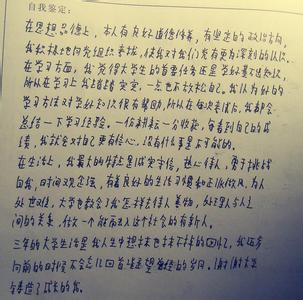 自我鉴定:
在思想品德上，本人有良好道德修养，有坚定的政治方向，
我积极地向党组织靠拢，使我对我们党有更为深刻的认识。
在学习方面，我觉得大学生的首要任务还是学好基础知识，
所以在学习上我踏踏实实，一点也不放松自己。我认为好的
学习方法对学好知识很有帮助，所以在每次考试后，我都会
总结一下学习经验。一份耕耘一分收获，每看到自己的成
绩，我就会对自己更有信心，没有什么事是不可能的。
在生活上，我最大的特点是诚实守信，热心待人，勇于挑战
自我，时间观念强，有着良好的生活习惯和正派作风。为人
处世
大学也教会了我怎样去待人善物，处理人与人之
间的关系，做一个能
这个社会的有新人。
三年的大学生活是我人生中想抹也抹不掉的回忆，我
向前的时候不会忘
的岁月。谢谢大学
成长的我。